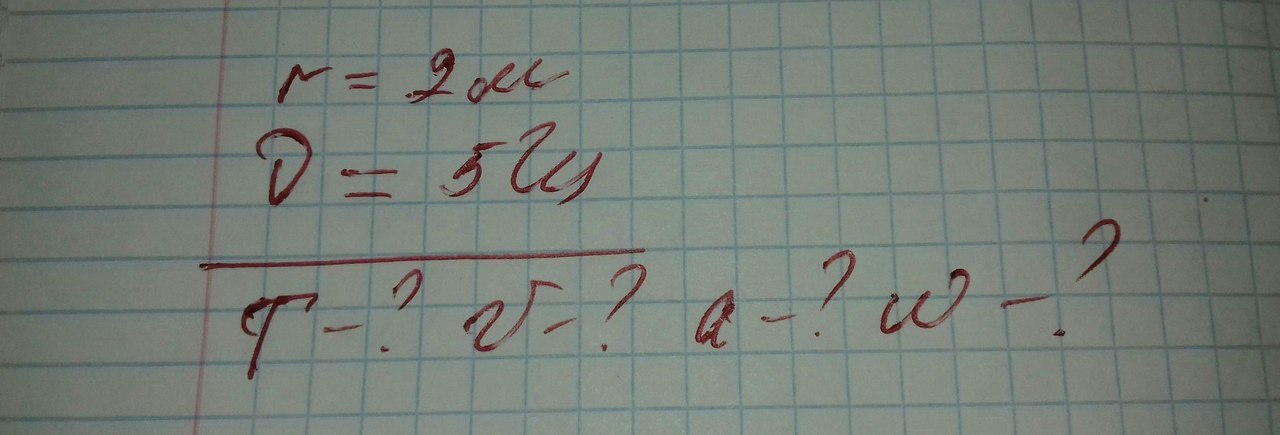 r = 2м
ν = 5Гц
T - ? υ - ? a - ? ω - ?